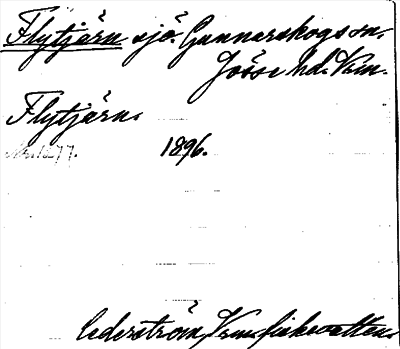 Flytjärn sjö. Gunnarskogs sn.
Jösse hd. Vrm.
Flytjärn.
1896.
Cederström, Vrm. fiskevatten.